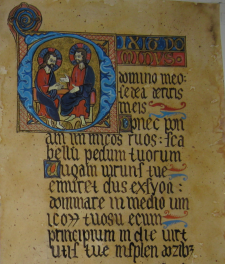 DIXIT DO
domino meo:
sede a dextris
meis
Donec pon
am inimicos tuos: sca
bellū pedum tuorum
Virgam virtutis tue
emittet dns ex syon:
dominare in medio inim
tecum
principium in die virt
utis tue in splendorib